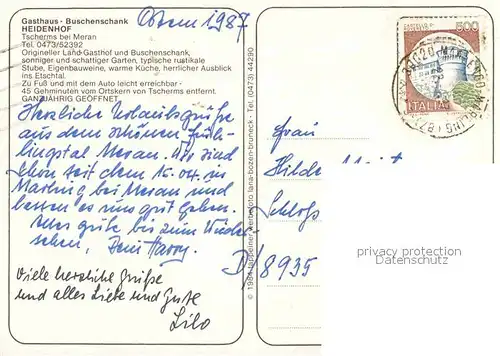 Gasthaus - Buschenschank
HEIDENHOF
Tscherms bei Meran
Tel. 0473/52392
Origineller Land-Gasthof und Buschenschank,
sonniger und schattiger Garten, typische rustikale
Stube, Eigenbauweine, warme Küche, herrlicher Ausblick
ins Etschtal.
Zu Fuß und mit dem Auto leicht erreichbar -
45 Gehminuten vom Ortskern von Tscherms entfernt.
GANZJÄHRIG GEÖFFNET.
Ostern 1987
Herzliche Urlaubsgrüße
aus dem schönen Früh-
lingstal Meran. Wir sind
schon seit dem 15. in
Marling bei Meran und
lassen es uns gut gehen.
Alles gute bis zum Wieder-
sehen, Deine Harry.
Viele herzliche Grüße
und alles Liebe und Gute
Lilo
lana-bozen-bruneck - Tel. (0473) 44290
500
ITALIA
Frau
Hilde
Schloß
D/8935
privacy protection
Datenschutz